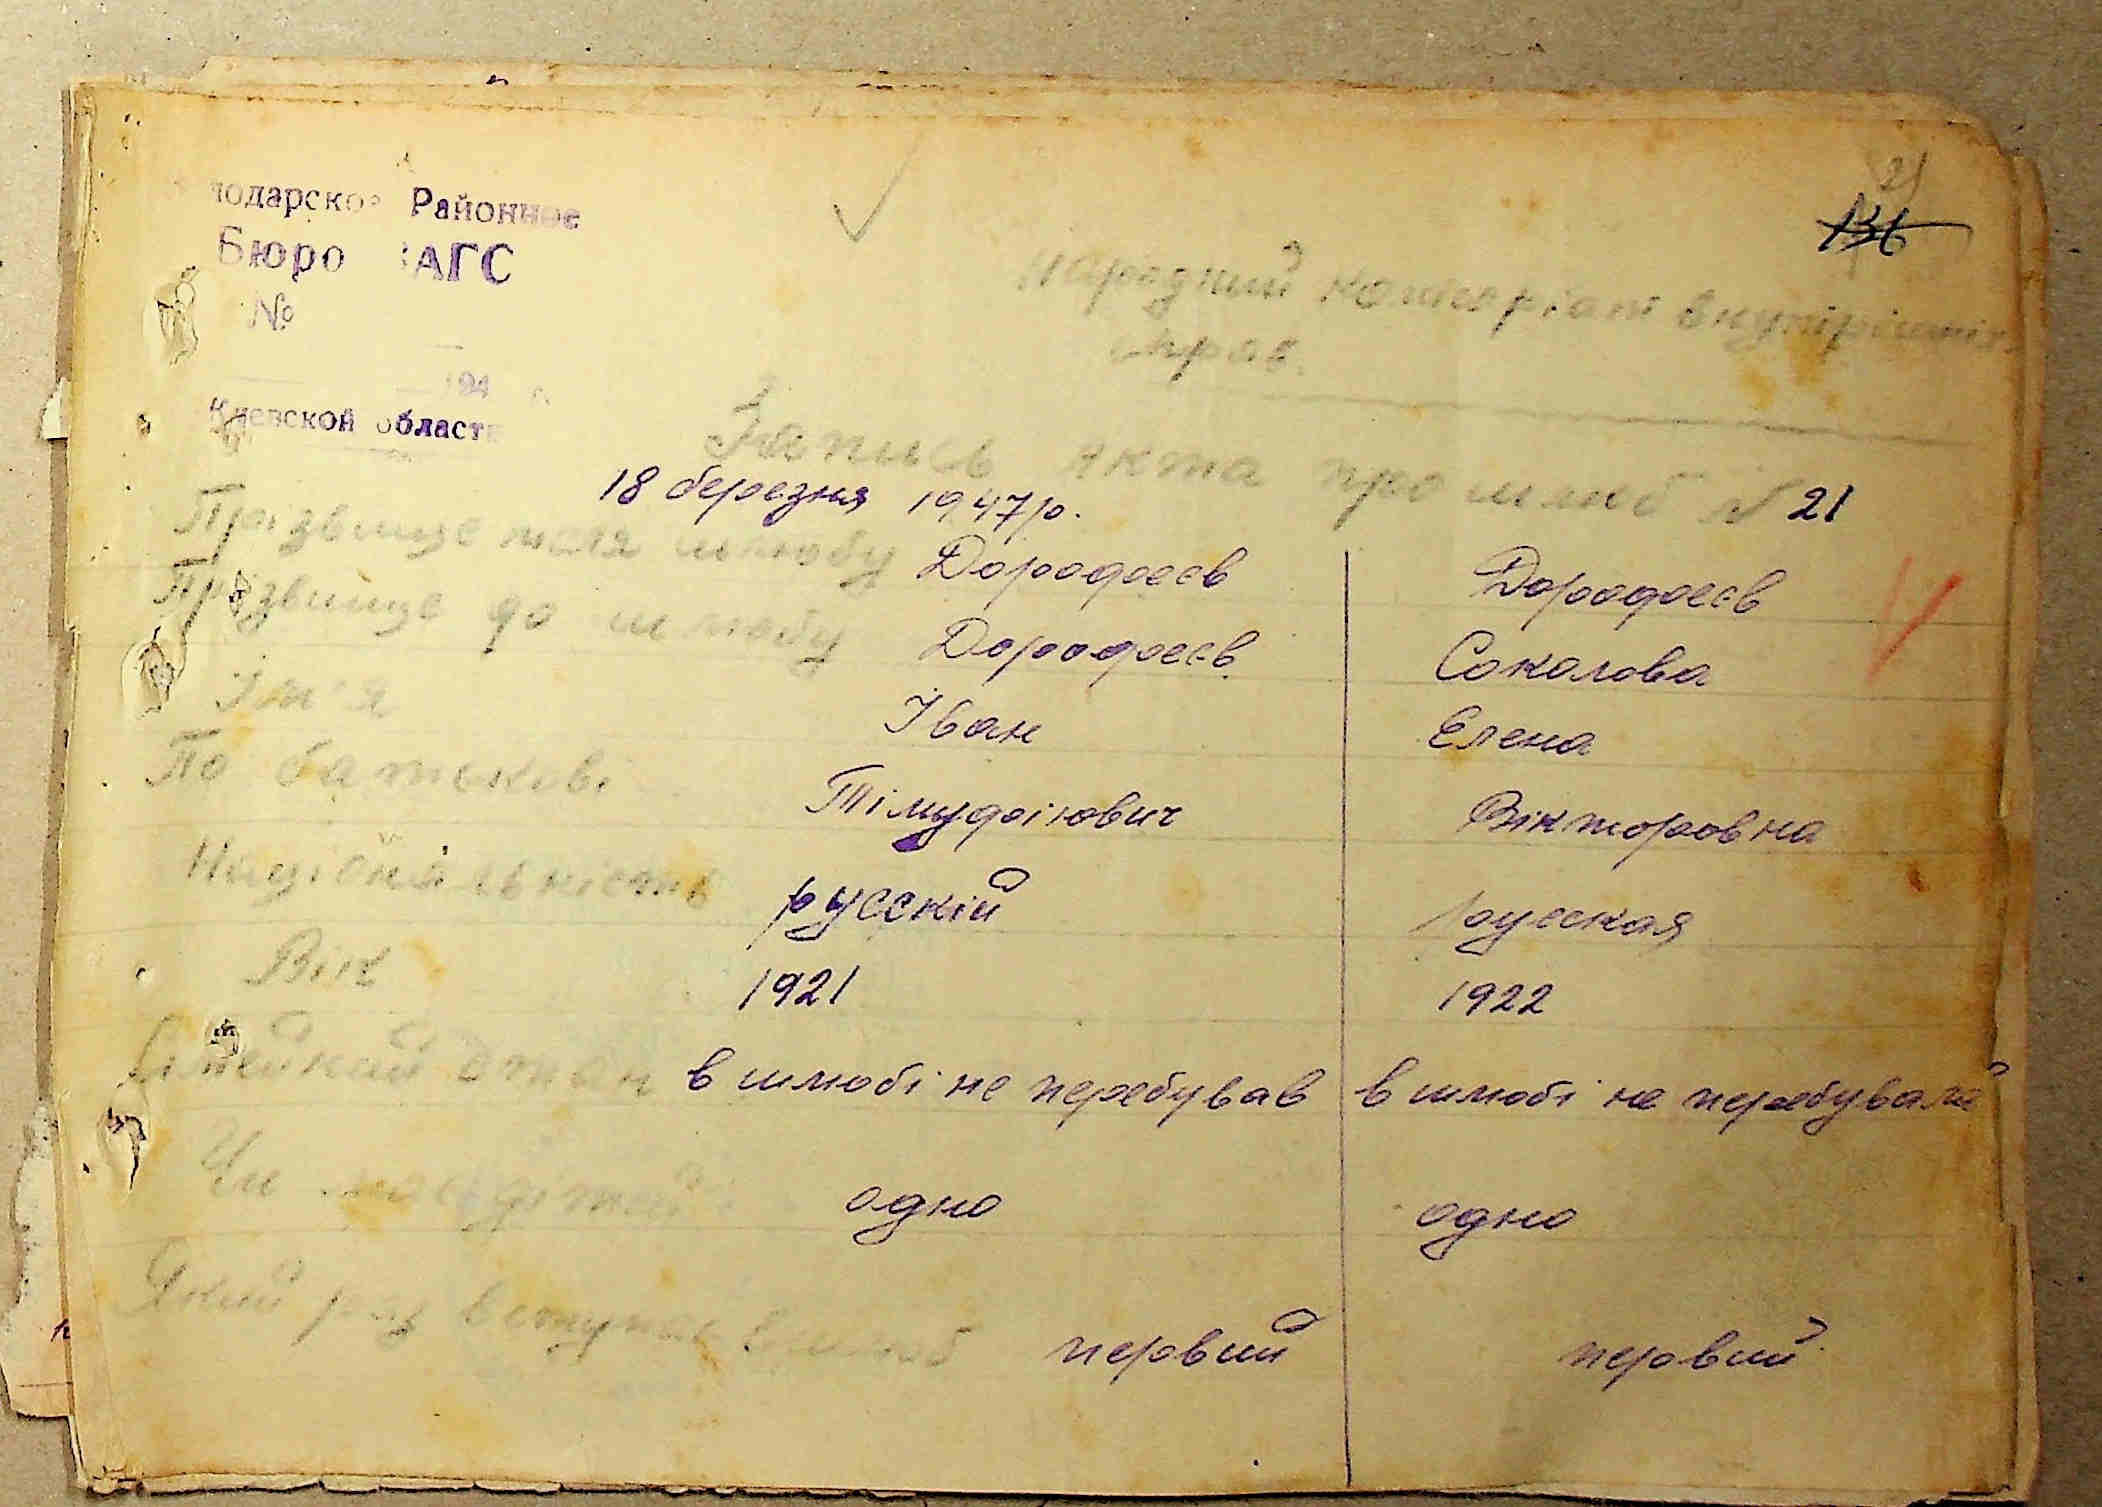 Районное
Бюро ЗАГС
№
194
Киевской области
21
136
Народний комісаріат внутрішніх
справ.
Запись акта про шлюб № 21
18 березня 1947 р.
Прізвище після шлюбу Дорофеєв Дорофеєв
Прізвище до шлюбу Дорофеєв Соколова
Ім'я Іван Елена
По батькові Тімуфіювич Вікторовна
Національність русскій русская
Вік 1921 1922
Сімейний стан в шлюбі не перебував в шлюбі не перебувала
Чи дітей одно одно
Який раз вступає в шлюб первий первий